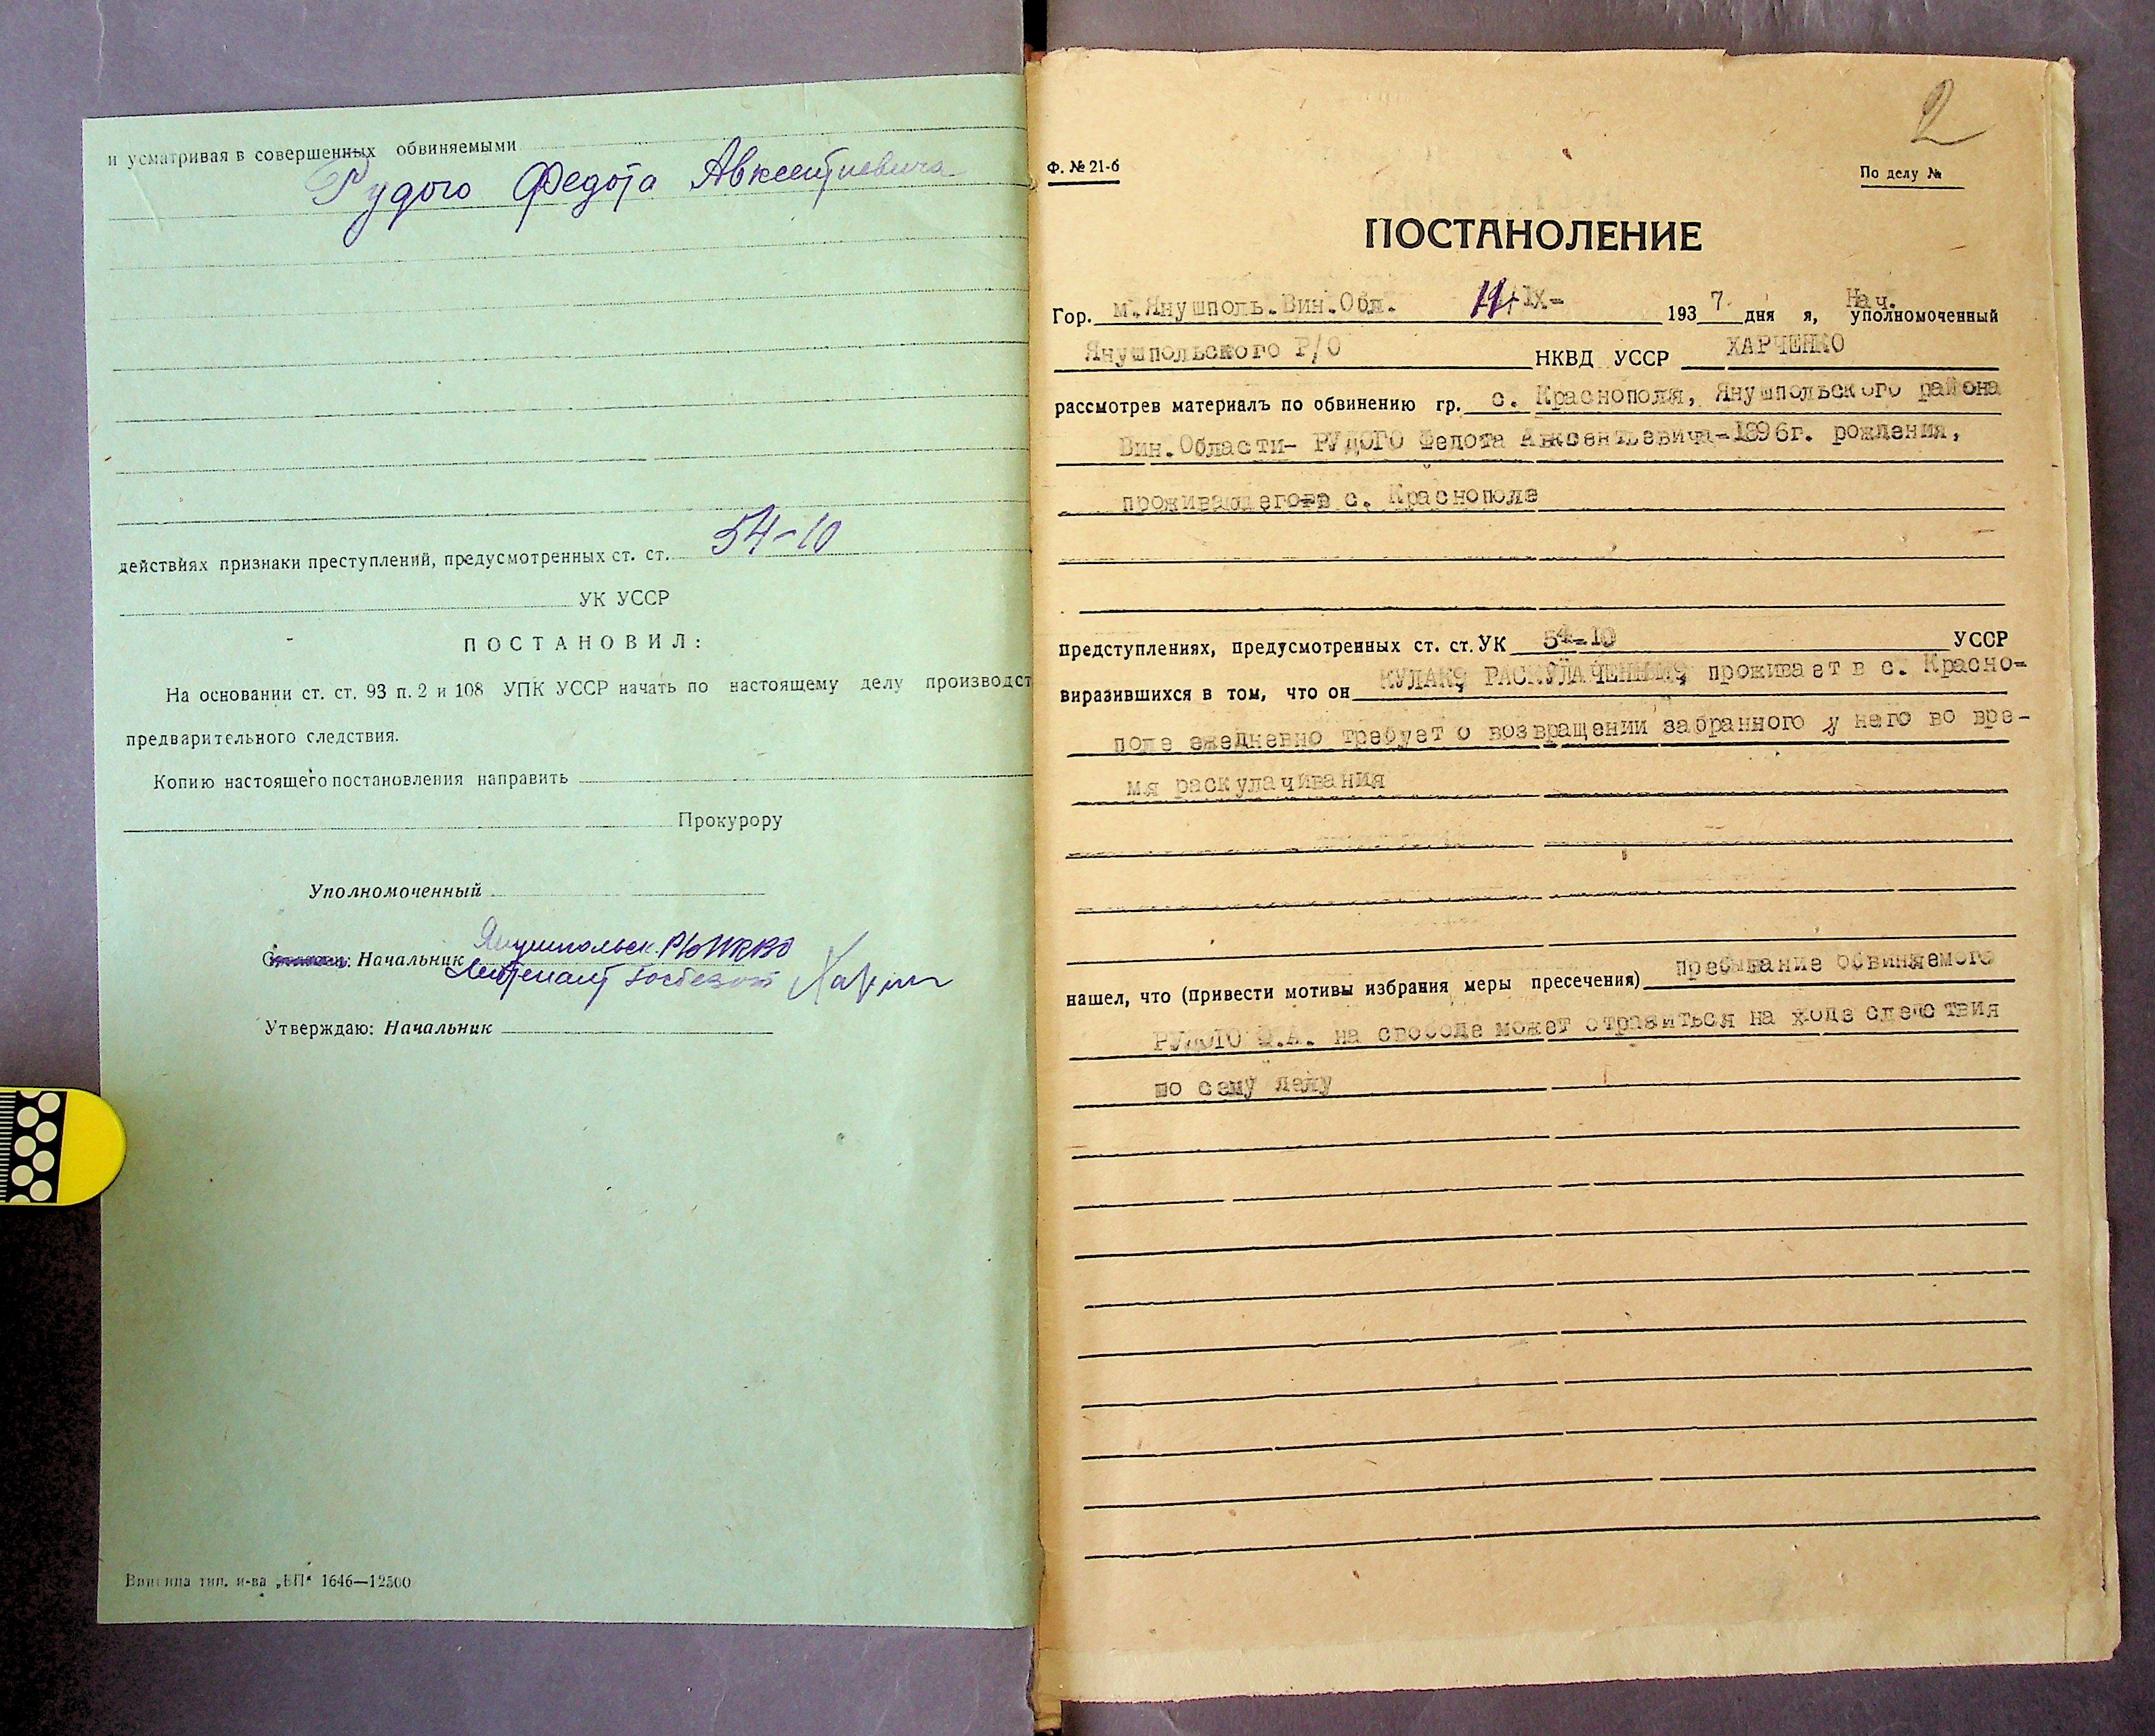 и усматривая в совершенных обвиняемыми
Рудого Федота Авксентиевича
действиях признаки преступлений, предусмотренных ст. ст. 54-10
УК УССР
ПОСТАНОВИЛ:
На основании ст. ст. 93 п. 2 и 108 УПК УССР начать по настоящему делу производст
предварительного следствия.
Копию настоящего постановления направить
Прокурору
Уполномоченный
Янушпольск. РО НКВД
Начальник
Лейтенант госбезоп
Утверждаю: Начальник
Винница тип. и-ва „ВП“ 1646—12500
2
Ф. № 21-б
По делу №
ПОСТАНОЛЕНИЕ
Гор. м. Янушполь. Вин. Обл. IX- 1937. дня я, Нач. уполномоченный
Янушпольского Р/О НКВД УССР ХАРЧЕНКО
рассмотрев материалъ по обвинению гр. с. Краснополя, Янушпольского района
Вин. Области- РУДОГО Федота Авксентьевича-1896г. рождения,
проживающего в с. Краснополе
предступлениях, предусмотренных ст. ст. УК 54-10 УССР
виразившихся в том, что он КУЛАК, РАСКУЛАЧЕННЫЙ, проживает в с. Красно-
поле ежедневно требует о возвращении забранного у него во вре-
мя раскулачивания
нашел, что (привести мотивы избрания меры пресечения) Пребывание обвиняемого
РУДОГО Ф.А. на свободе может отразиться на ходе следствия
по сему делу